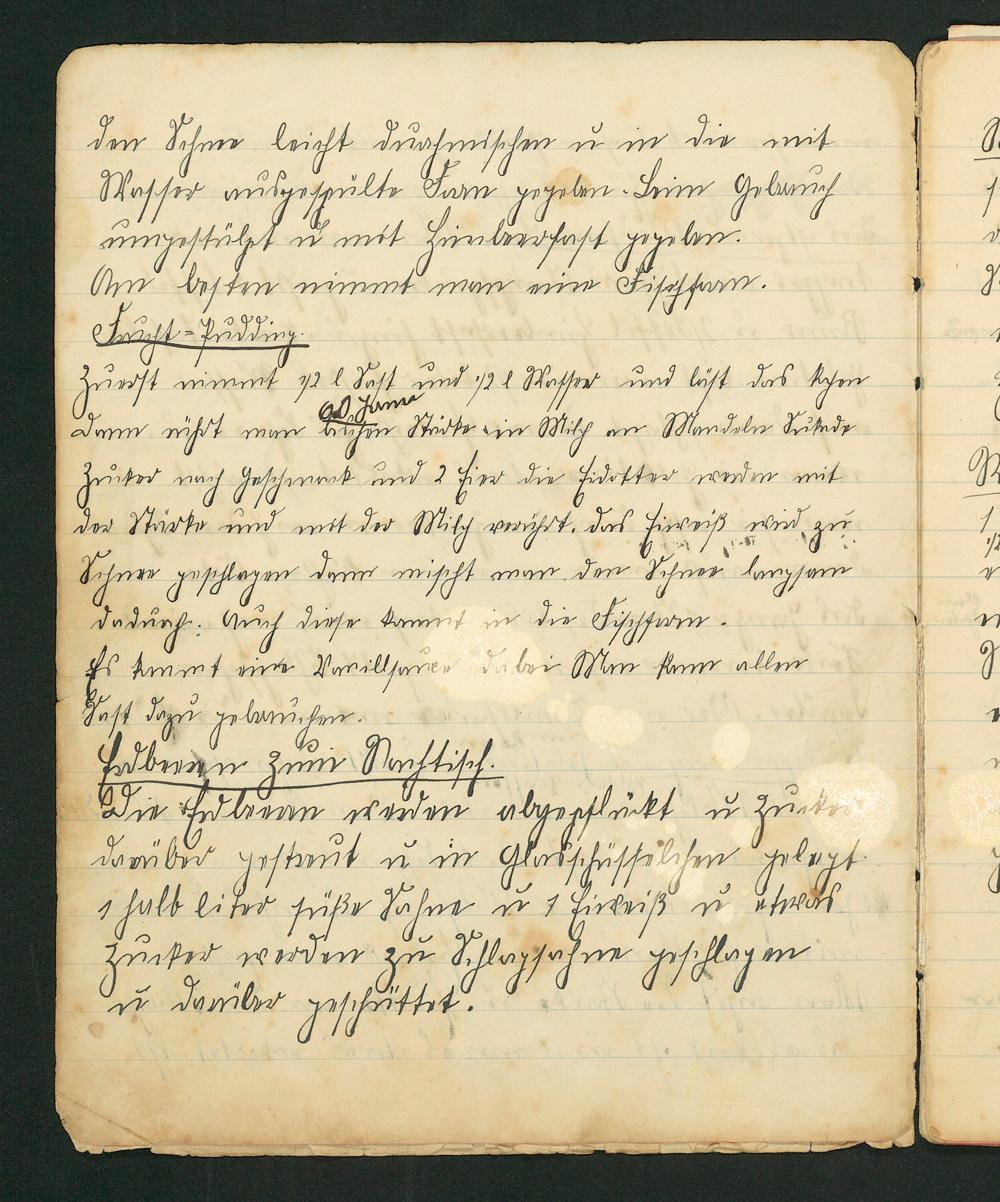 den Schnee leicht durchmischen u in die mit
Wasser ausgespülte Form gegeben. Beim Gebrauch
umgestülpt u mit Himbeersaft gegeben.
Am besten nimmt man eine Fischform.
Frucht=Pudding.
Zuerst nimmt 1/2 l Saft und 1/2 l Wasser und läst das kochen
Dann rührt man Stärke in Milch an Mandeln Sukade
Zucker nach Geschmack und 2 Eier die Eidotter werden mit
der Stärke und mit der Milch verrührt. das Eiweiß wird zu
Schnee geschlagen dann mischt man den Schnee langsam
dadurch. Auch diese kommt in die Fischform.
Es kommt eine Vanillsauce dabei Man kann allen
Saft dazu gebrauchen.
Erdbeeren zum Nachtisch.
Die Erdbeeren werden abgepflückt u Zucker
darüber gestreut u in Glasschüsselchen gelegt.
1 halb liter süße Sahne u 1 Eiweiß u etwas
Zucker werden zu Schlagsahne geschlagen
u darüber geschüttet.